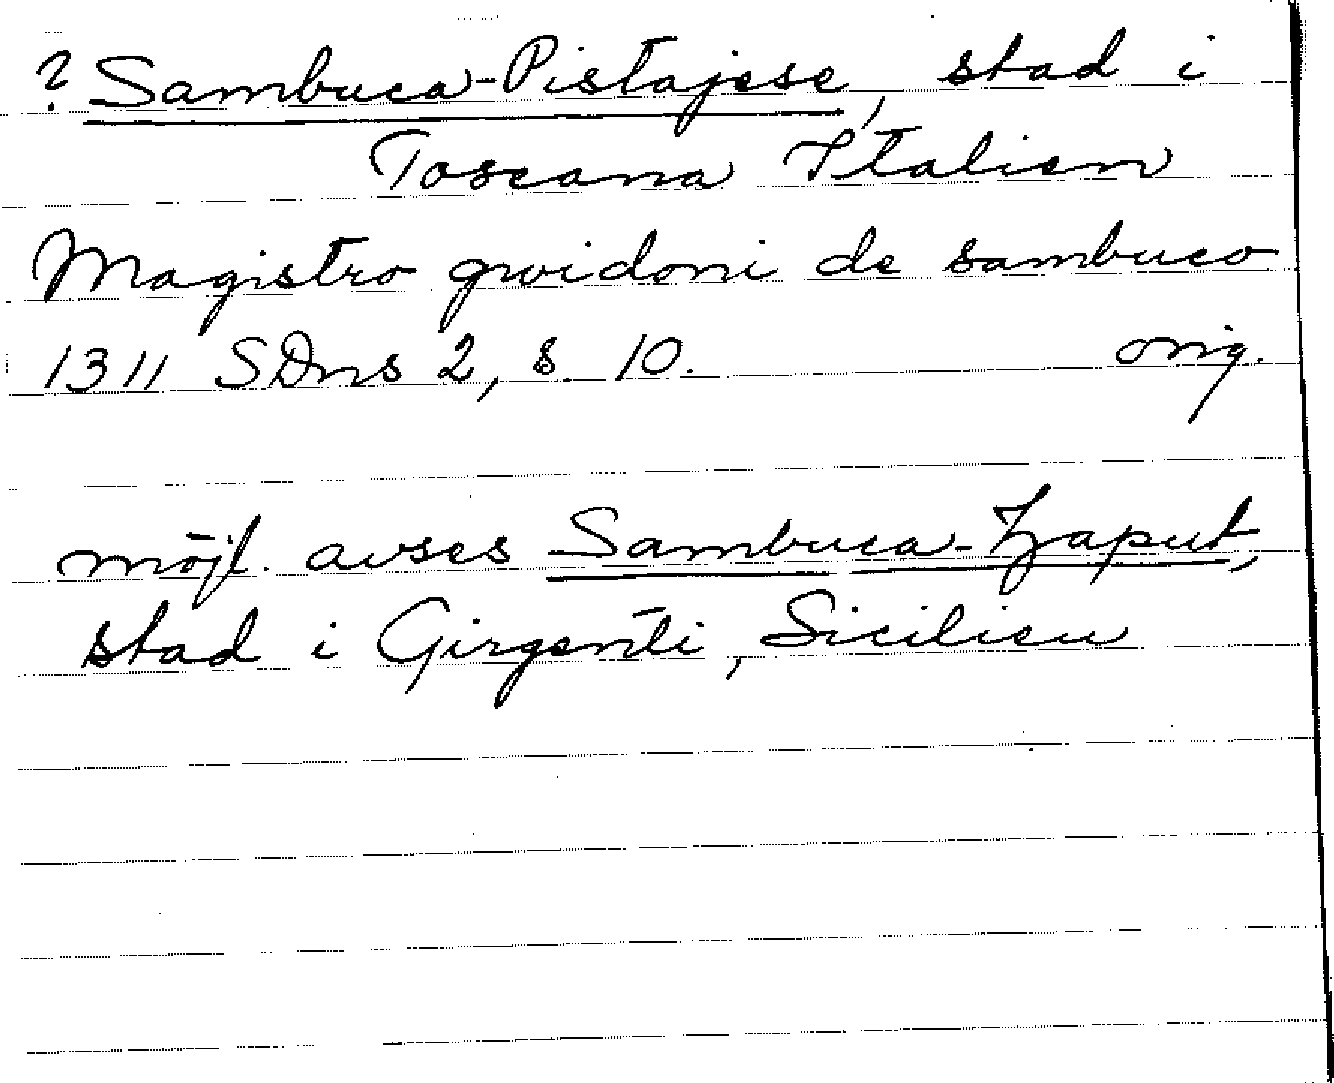 ? Sambuca-Pistajese, stad i
Toscana Italien
Magistro gwidoni de sambuco
1311 SDns 2, s 10. orig.
möjl. avses Sambuca-Zaput,
stad i Girgenti, Sicilien